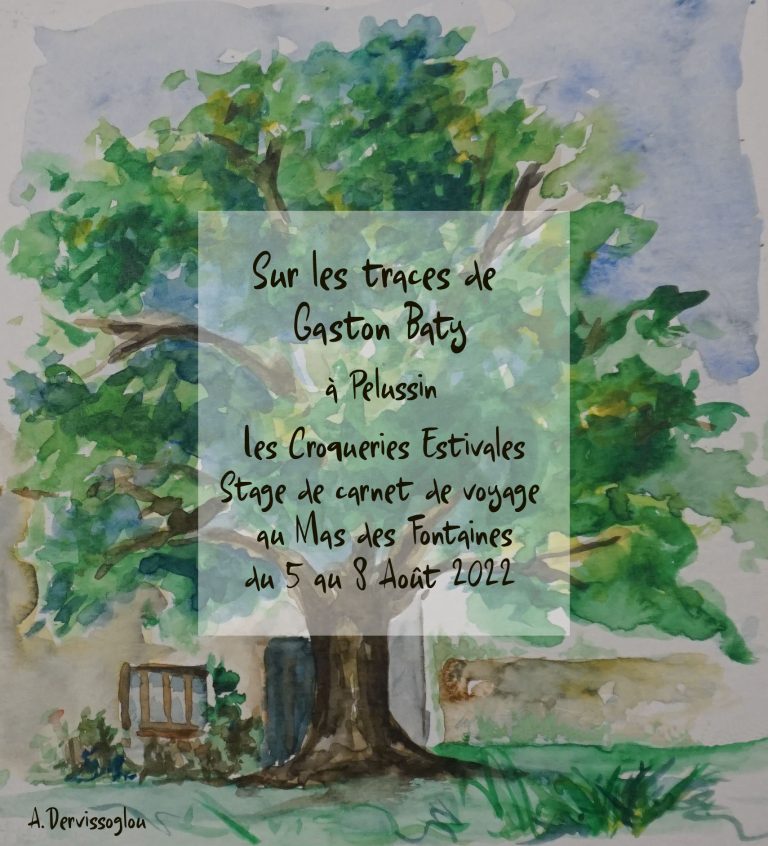 Sur les traces de
Gaston Baty
à Pelussin
les Croqueries Estivales
Stage de carnet de voyage
au Mas des Fontaines
du 5 au 8 Août 2022
A.Dervissoglou